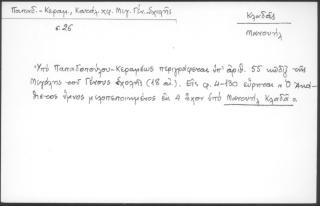 Παπαδ.-Κεραμ., Κατάλ. χφ. Μεγ. Γέν. Σχολῆς
Κλαδᾶς
σ. 26
Μανουήλ
Ὑπὸ Παπαδοπούλου-Κεραμέως περιγράφεται ὑπ' ἀριθ. 55 κῶδιξ τῆς
Μεγάλης τοῦ Γένους Σχολῆς (18 αἰ.). Εἰς φ. 4-130 εὕρηται "Ὁ Ἀκά-
θιστος ὕμνος μελοποιημένος εἰς 4 ἤχον ὑπὸ Μανουήλ Κλαδᾶ".